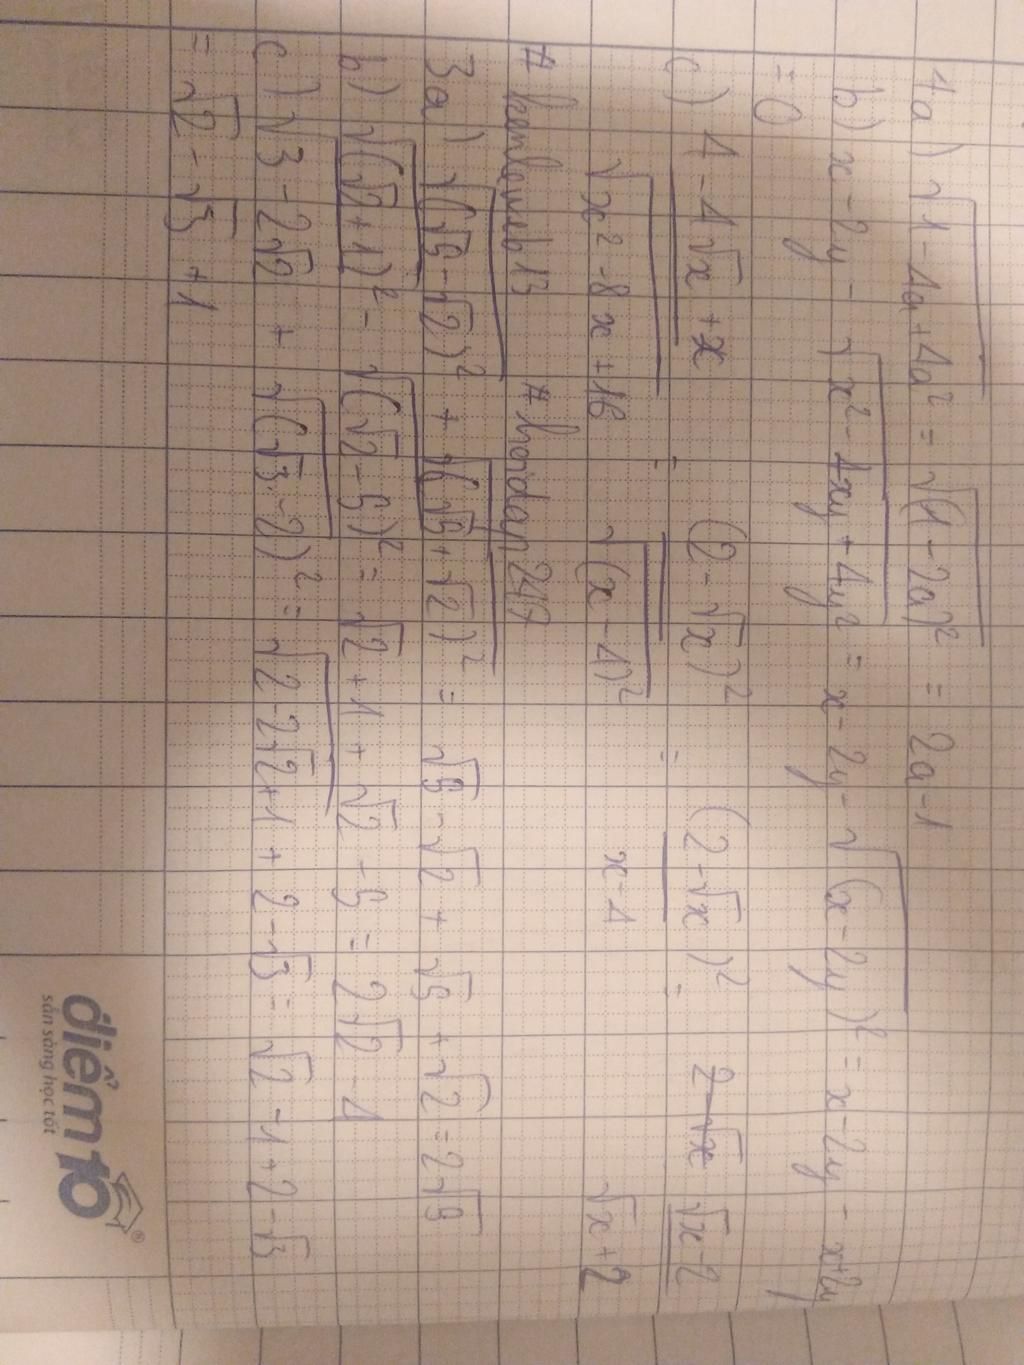 1a) √(1 - 4a + 4a²) = √((1 - 2a)²) = 2a - 1
b) x - 2y - √(x² - 4xy + 4y²) = x - 2y - √((x - 2y)²) = x - 2y - x + 2y
= 0
c) (4 - 4√x + x)/√(x² - 8x + 16) = (2 - √x)²/√((x - 4)²) = (2 - √x)²/(x - 4) = (√x - 2)/(√x + 2)
# kenlavieb13 # hoidap247
3a) √((√5 - √2)²) + √((√5 + √2)²) = √5 - √2 + √5 + √2 = 2√5
b) √((√2 + 1)²) - √((√2 - 5)²) = √2 + 1 + √2 - 5 = 2√2 - 4
c) √(3 - 2√2) + √((√3 - 2)²) = √(2 - 2√2 + 1) + 2 - √3 = √2 - 1 + 2 - √3
= √2 - √3 + 1
điểm10®
sẵn sàng học tốt